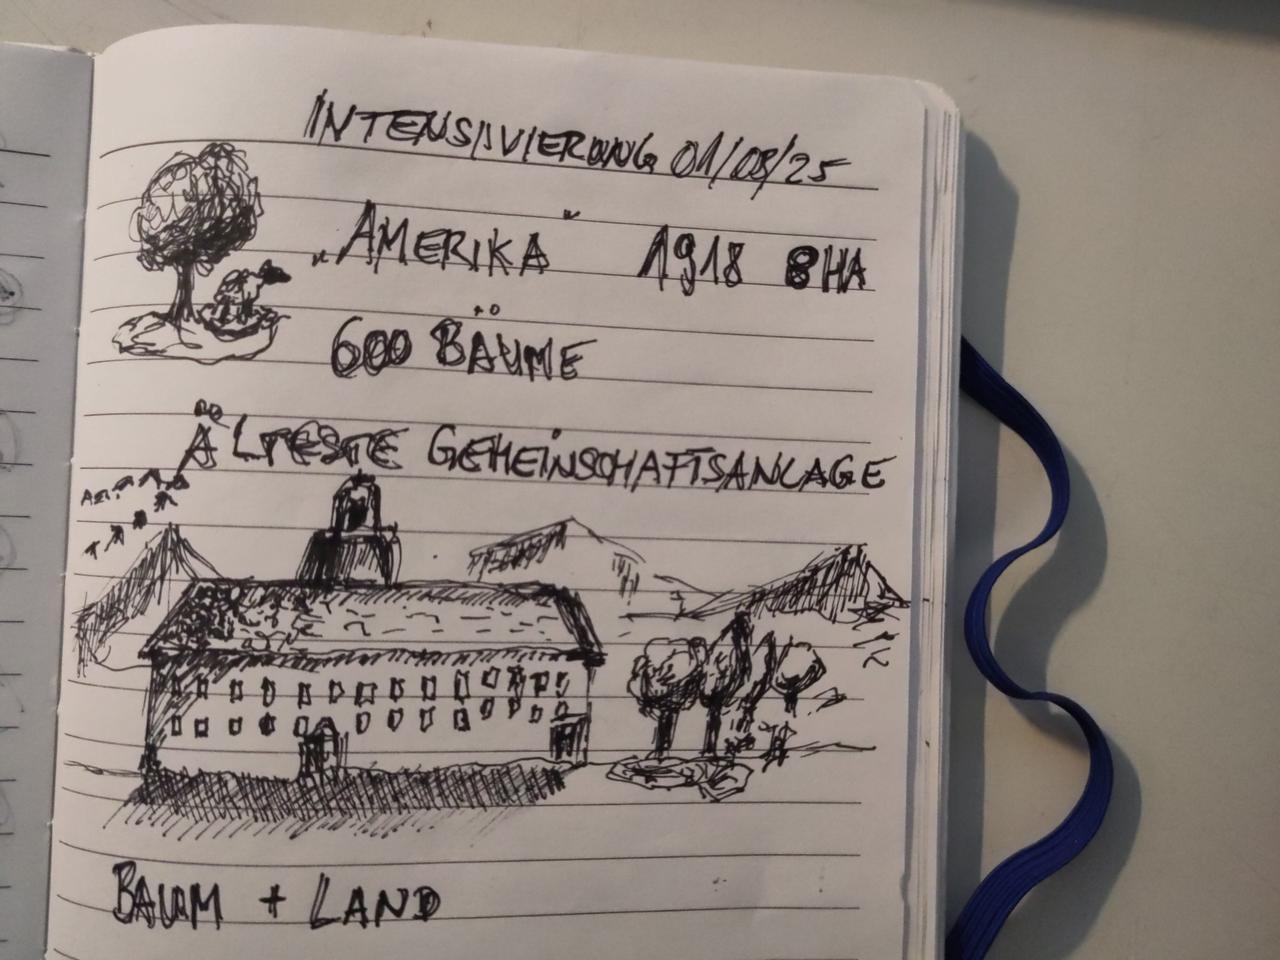 INTENSIVIERUNG 01/08/25
„AMERIKA" 1918 8HA
600 BÄUME
ÄLTESTE GEMEINSCHAFTSANLAGE
BAUM + LAND